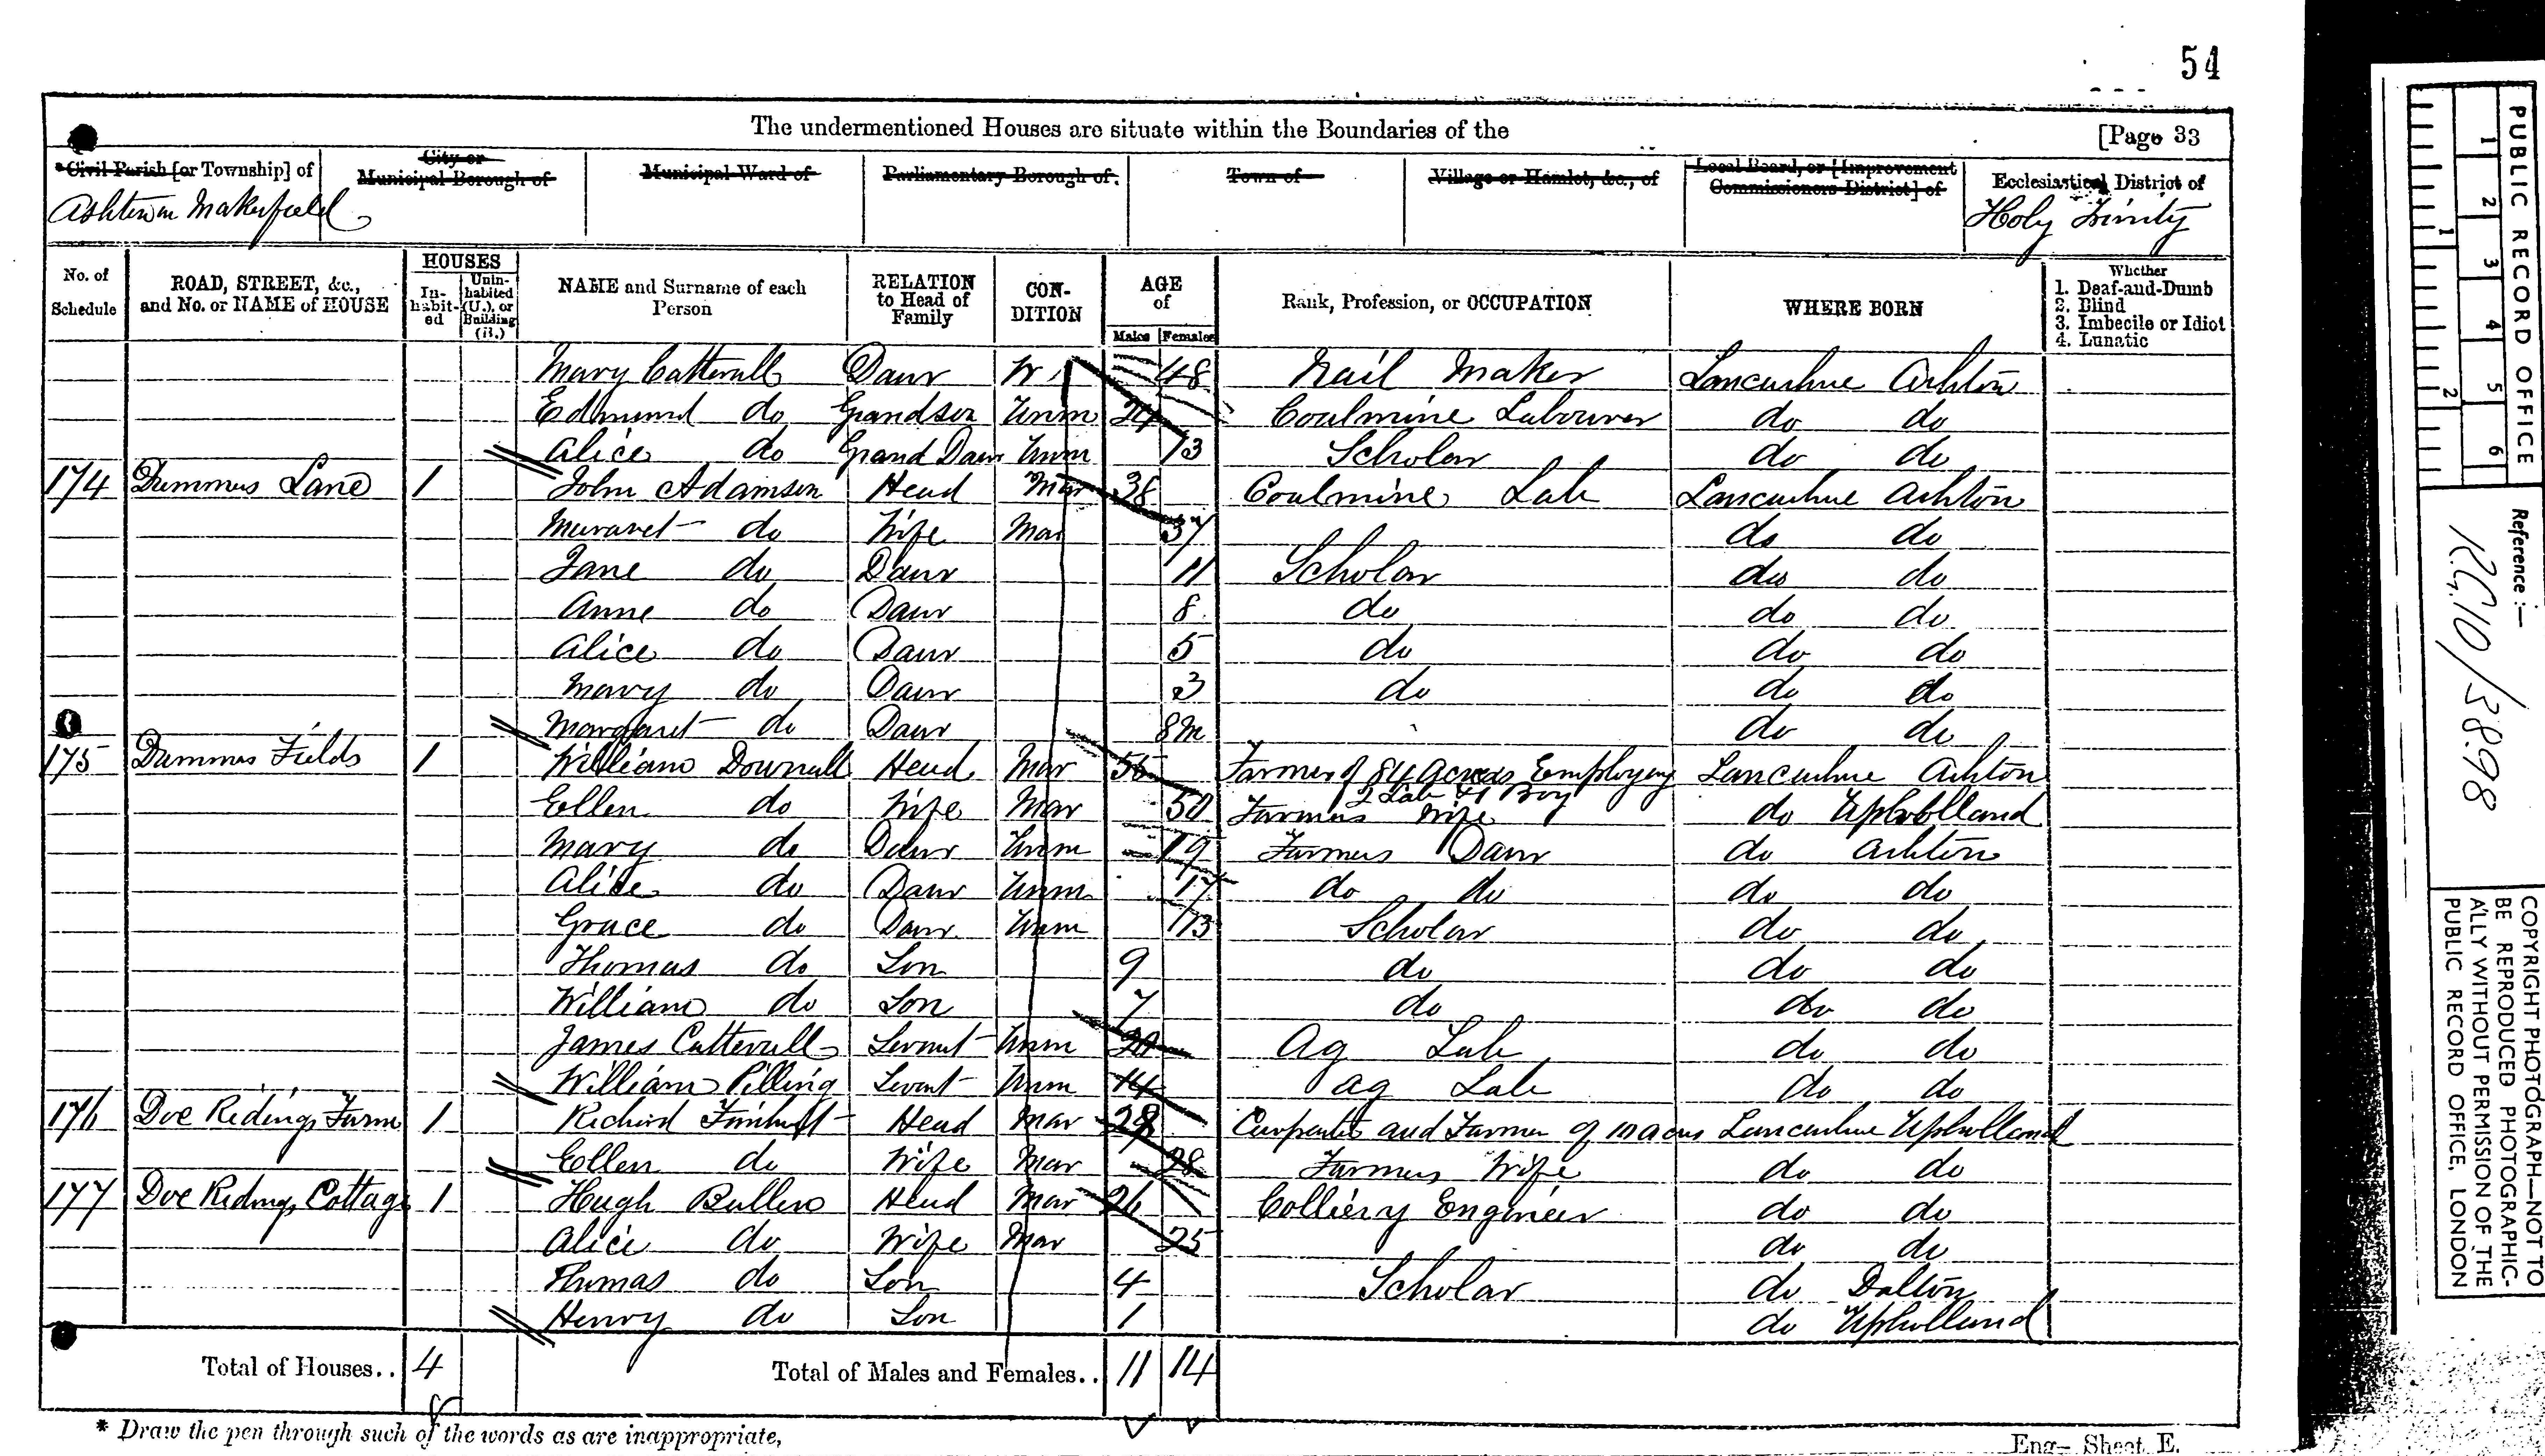 54
The undermentioned Houses are situate within the Boundaries of the [Page 33
*Civil Parish [or Township] of City or Municipal Borough of Municipal Ward of Parliamentary Borough of Town of Village or Hamlet, &c., of Local Board, or [Improvement Commissioners District] of Ecclesiastical District of
Ashton in Makerfield Holy Trinity
No. of Schedule ROAD, STREET, &c., and No. or NAME of HOUSE HOUSES Inhabited Uninhabited (U.), or Building (B.) NAME and Surname of each Person RELATION to Head of Family CONDITION AGE of Males Females Rank, Profession, or OCCUPATION WHERE BORN Whether 1. Deaf-and-Dumb 2. Blind 3. Imbecile or Idiot 4. Lunatic
Mary Catterall Daur W 48 Nail Maker Lancashire Ashton
Edmund do Grandson Unm 24 Coalmine Labourer do do
Alice do Grand Daur Unm 13 Scholar do do
174 Dummus Lane 1 John Adamson Head Mar 38 Coalmine Lab Lancashire Ashton
do Wife Mar 37 do do
Jane do Daur 11 Scholar do do
Anne do Daur 8 do do do
Alice do Daur 5 do do do
Mary do Daur 3 do do do
Margaret do Daur 8m do do
175 Dummus Fields 1 William Downall Head Mar Farmer of 84 Acres Employing 2 Lab & 1 Boy Lancashire Ashton
Ellen do Wife Mar 50 Farmers Wife do Upholland
Mary do Daur Unm 19 Farmers Daur do Ashton
Alice do Daur Unm 17 do do do do
Grace do Daur Unm 13 Scholar do do
Thomas do Son 9 do do do
William do Son 7 do do do
James Catterall Servant Unm 20 Ag Lab do do
William Pilling Servant Unm 14 Ag Lab do do
176 Doe Ridings Farm 1 Richard Fairhurst Head Mar 28 Carpenter and Farmer of 10 acres Lancashire Upholland
Ellen do Wife Mar 28 Farmers Wife do do
177 Doe Ridings Cottage 1 Hugh Bullen Head Mar 26 Colliery Engineer do do
Alice do Wife Mar 25 do do
Thomas do Son 4 Scholar do Dalton
Henry do Son 1 do Upholland
Total of Houses.. 4 Total of Males and Females.. 11 14
* Draw the pen through such of the words as are inappropriate,
Eng— Sheet E.
PUBLIC RECORD OFFICE
1 2 3 4 5 6
1 2
Reference :—
R.G. 10/3898
COPYRIGHT PHOTOGRAPH—NOT TO
BE REPRODUCED PHOTOGRAPHIC-
ALLY WITHOUT PERMISSION OF THE
PUBLIC RECORD OFFICE, LONDON